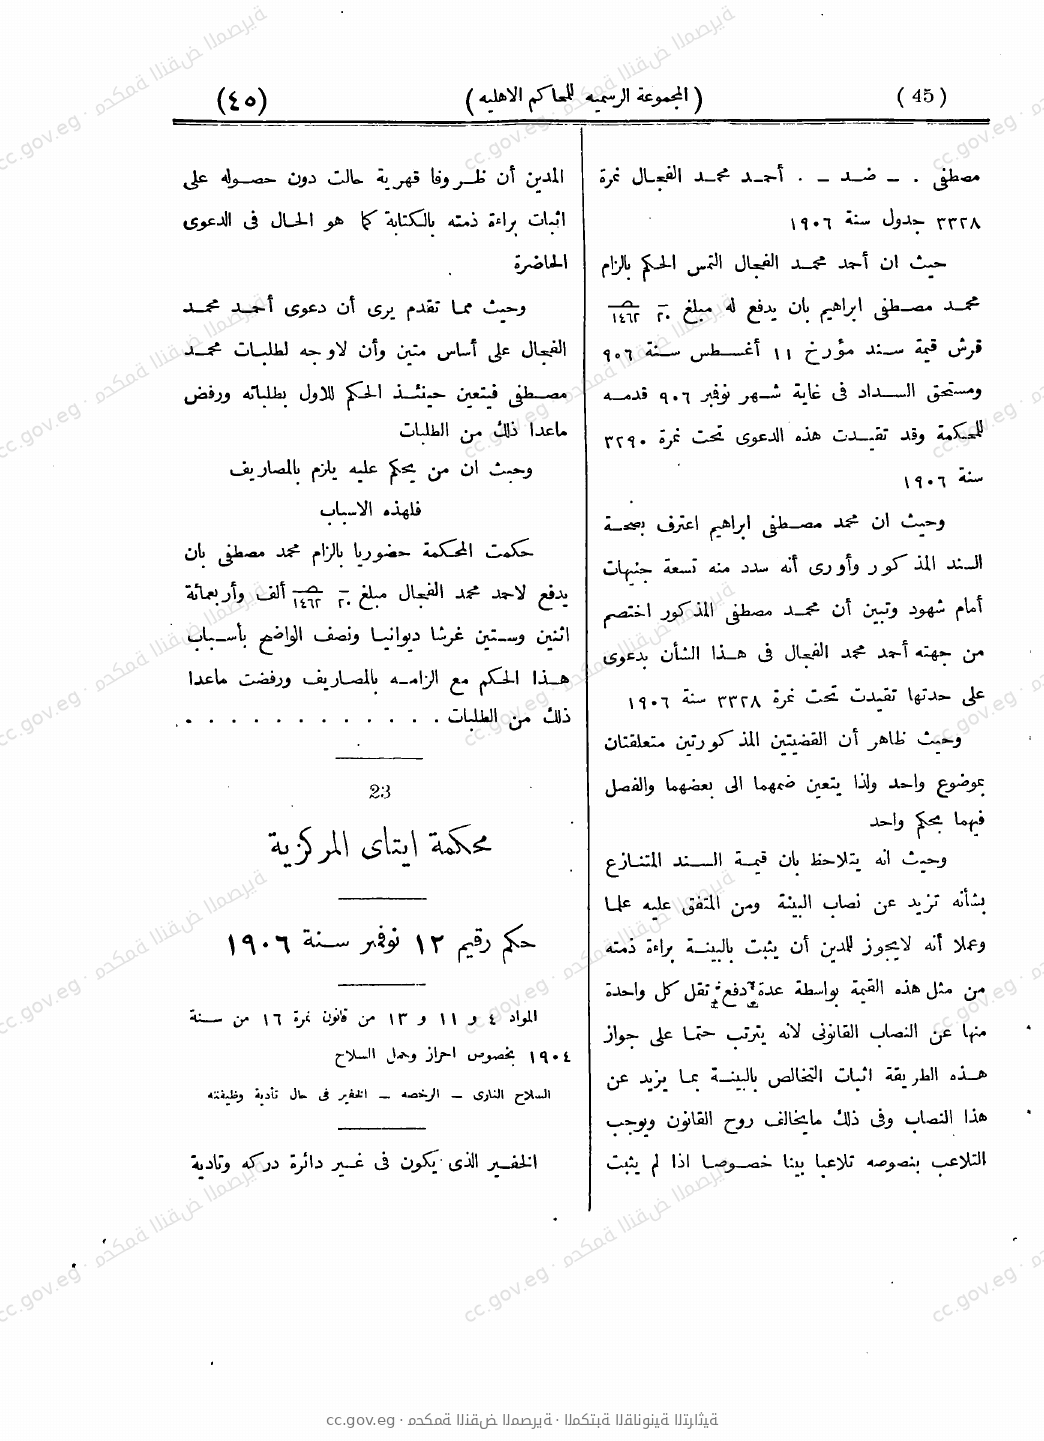 ( 45 )
(المجموعة الرسميه للمحاكم الاهليه)
(٤٥)
مصطفى . ــ ضد ــ . أحمد محمد الفجال نمرة
٣٣٢٨ جدول سنة ١٩٠٦
حيث ان أحمد محمد الفجال التمس الحكم بالزام
محمد مصطفى ابراهيم بان يدفع له مبلغ ٢٠ ١٤٦٢
قرش قيمة سند مؤرخ ١١ أغسطس سنة ٩٠٦
ومستحق السداد فى غاية شهر نوفمبر ٩٠٦ قدمه
للمحكمة وقد تقيدت هذه الدعوى تحت نمرة ٣٢٩٠
سنة ١٩٠٦
وحيث ان محمد مصطفى ابراهيم اعترف بصحة
السند المذكور وأورى أنه سدد منه تسعة جنيهات
أمام شهود وتبين أن محمد مصطفى المذكور اختصم
من جهته أحمد محمد الفجال فى هذا الشأن بدعوى
على حدتها تقيدت تحت نمرة ٣٣٢٨ سنة ١٩٠٦
وحيث ظاهر أن القضيتين المذكورتين متعلقتان
بموضوع واحد ولذا يتعين ضمهما الى بعضهما والفصل
فيهما بحكم واحد
وحيث انه يتلاحظ بان قيمة السند المتنازع
بشأنه تزيد عن نصاب البينة ومن المتفق عليه علما
وعملا أنه لا يجوز للمدين أن يثبت بالبينة براءة ذمته
من مثل هذه القيمة بواسطة عدة دفع تقل كل واحدة
منها عن النصاب القانونى لانه يترتب حتما على جواز
هذه الطريقة اثبات التخالص بالبينة بما يزيد عن
هذا النصاب وفى ذلك ما يخالف روح القانون ويوجب
التلاعب بنصوصه تلاعبا بينا خصوصا اذا لم يثبت
المدين أن ظروفا قهرية حالت دون حصوله على
اثبات براءة ذمته بالكتابة كما هو الحال فى الدعوى
الحاضرة
وحيث مما تقدم يرى أن دعوى أحمد محمد
الفجال على أساس متين وأن لاوجه لطلبات محمد
مصطفى فيتعين حينئذ الحكم للاول بطلباته ورفض
ماعدا ذلك من الطلبات
وحيث ان من يحكم عليه يلزم بالمصاريف
فلهذه الاسباب
حكمت المحكمة حضوريا بالزام محمد مصطفى بان
يدفع لاحمد محمد الفجال مبلغ ٢٠ ١٤٦٢ ألف وأربعمائة
اثنين وستين غرشا ديوانيا ونصف الواضح بأسباب
هذا الحكم مع الزامه بالمصاريف ورفضت ماعدا
ذلك من الطلبات . . . . . . . . . . . .
23
محكمة ايتاى المركزية
حكم رقيم ١٢ نوفمبر سنة ١٩٠٦
المواد ٤ و ١١ و ١٣ من قانون نمرة ١٦ من سنة
١٩٠٤ بخصوص احراز وحمل السلاح
السلاح النارى ــ الرخصه ــ الخفير فى حال تأدية وظيفته
الخفير الذى يكون فى غير دائرة دركه وتادية
cc.gov.eg · محكمة النقض المصرية · المكتبة القانونية التراثية